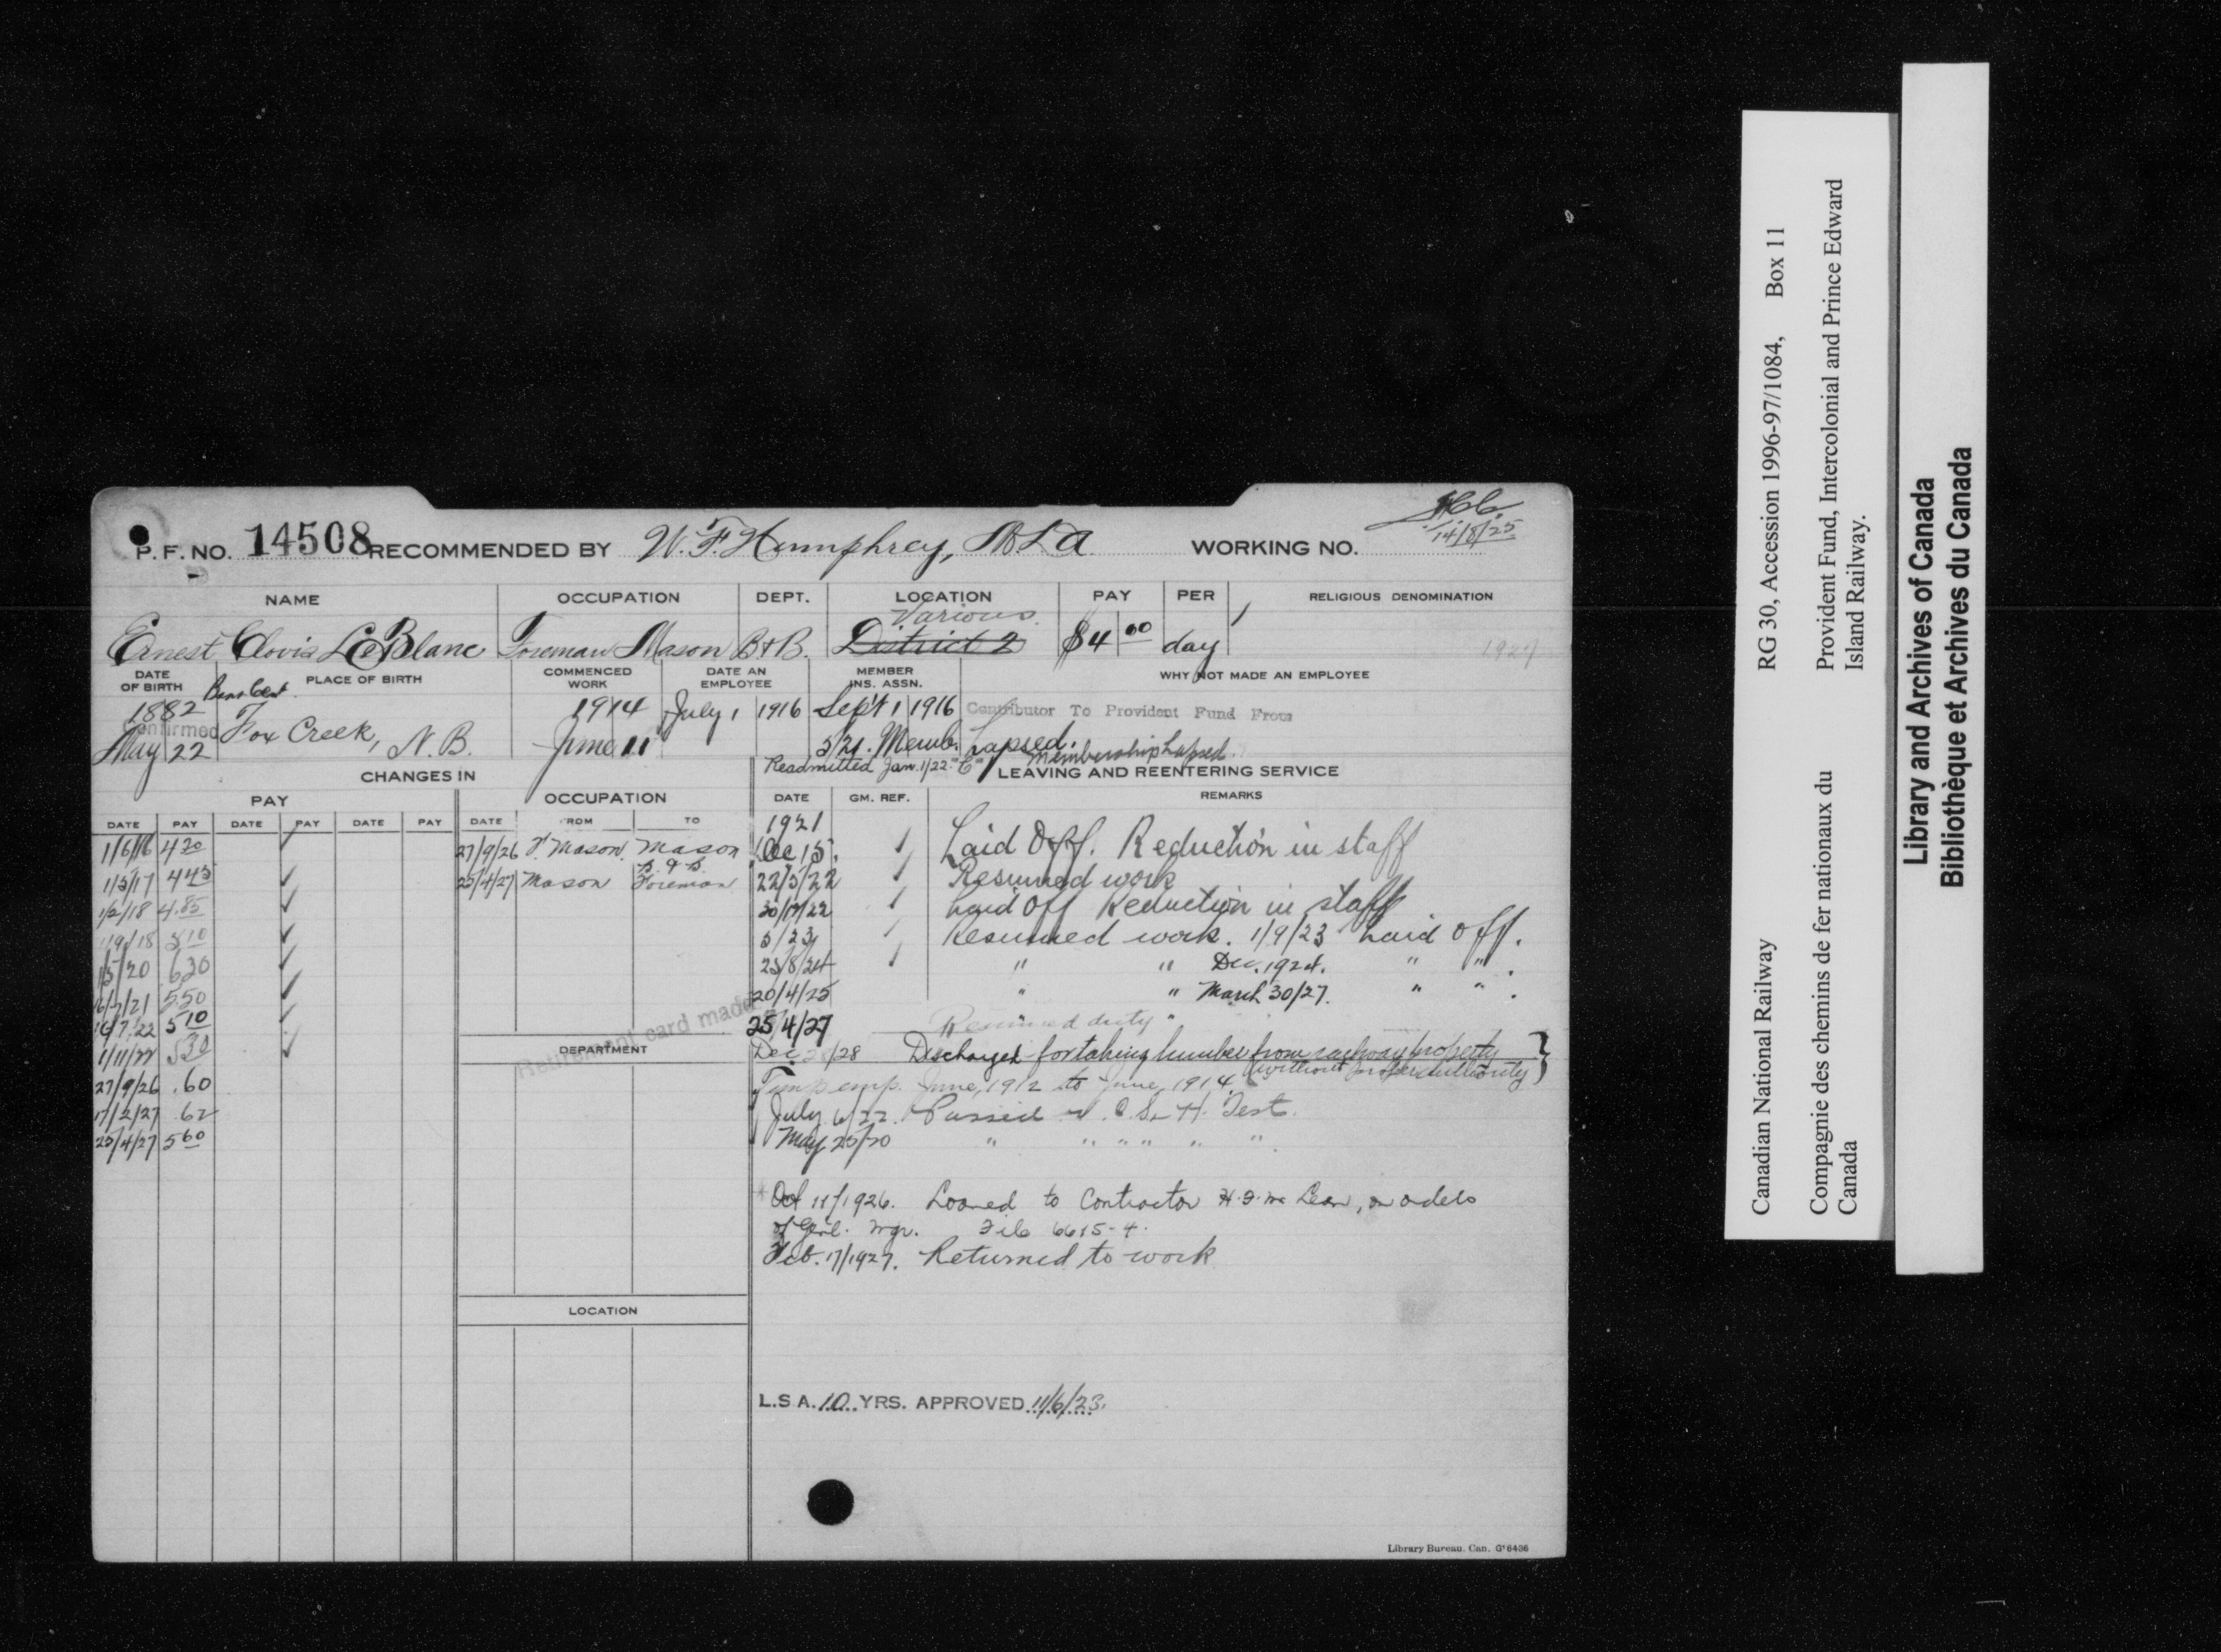 P. F. NO. 14508 RECOMMENDED BY W. F. Humphrey, M L A WORKING NO.
14/8/25
NAME OCCUPATION DEPT. LOCATION PAY PER RELIGIOUS DENOMINATION
Various.
Ernest Clovis LeBlanc Foreman Mason B+B. District 2 $4 00 day 1927
DATE OF BIRTH PLACE OF BIRTH COMMENCED WORK DATE AN EMPLOYEE MEMBER INS. ASSN. WHY NOT MADE AN EMPLOYEE
1882 1914 July 1 1916 Sept 1 1916 Contributor To Provident Fund From
Confirmed Fox Creek, N. B.
May 22 June 11 5/21. Memb. Lapsed.
Membership Lapsed.
Readmitted Jan. 1/22 "C"
CHANGES IN LEAVING AND REENTERING SERVICE
PAY OCCUPATION DATE GM. REF. REMARKS
DATE PAY DATE PAY DATE PAY DATE FROM TO
1921
1/6/16 4 20 27/9/26 F. Mason. Mason Dec 15. Laid Off. Reduction in staff
1/5/17 4 45 25/4/27 Mason B. & B. Foreman 22/5/22 Resumed work
1/2/18 4.85 Laid Off Reduction in staff
1/9/18 5 10 5/23 Resumed work. 1/9/23 Laid off.
1/5/20 6 30 25/8/24 " " Dec. 1924. " " .
16/7/21 5.50 20/4/25 " " March 30/27. " " .
16/7/22 5 10 25/4/27 Resumed duty
Retirement card made
1/11/22 5 30 DEPARTMENT Dec /28 Discharged for taking lumber from railway property
(without proper authority)
27/9/26 .60 Temp emp. June, 1912 to June, 1914.
17/2/27 .62 July 6/22. Passed V. C. S. & H. Test.
25/4/27 5 60 May 25/20 " " " " " "
Oct 11/1926. Loaned to Contractor H. F. Mc Lean, on orders
of Genl. Mgr. File 6615-4.
Feb. 17/1927. Returned to work
LOCATION
L.S.A. 10 YRS. APPROVED 11/6/23.
Library Bureau. Can. G 6436
Canadian National Railway RG 30, Accession 1996-97/1084, Box 11
Compagnie des chemins de fer nationaux du Canada
Provident Fund, Intercolonial and Prince Edward Island Railway.
Library and Archives of Canada
Bibliothèque et Archives du Canada